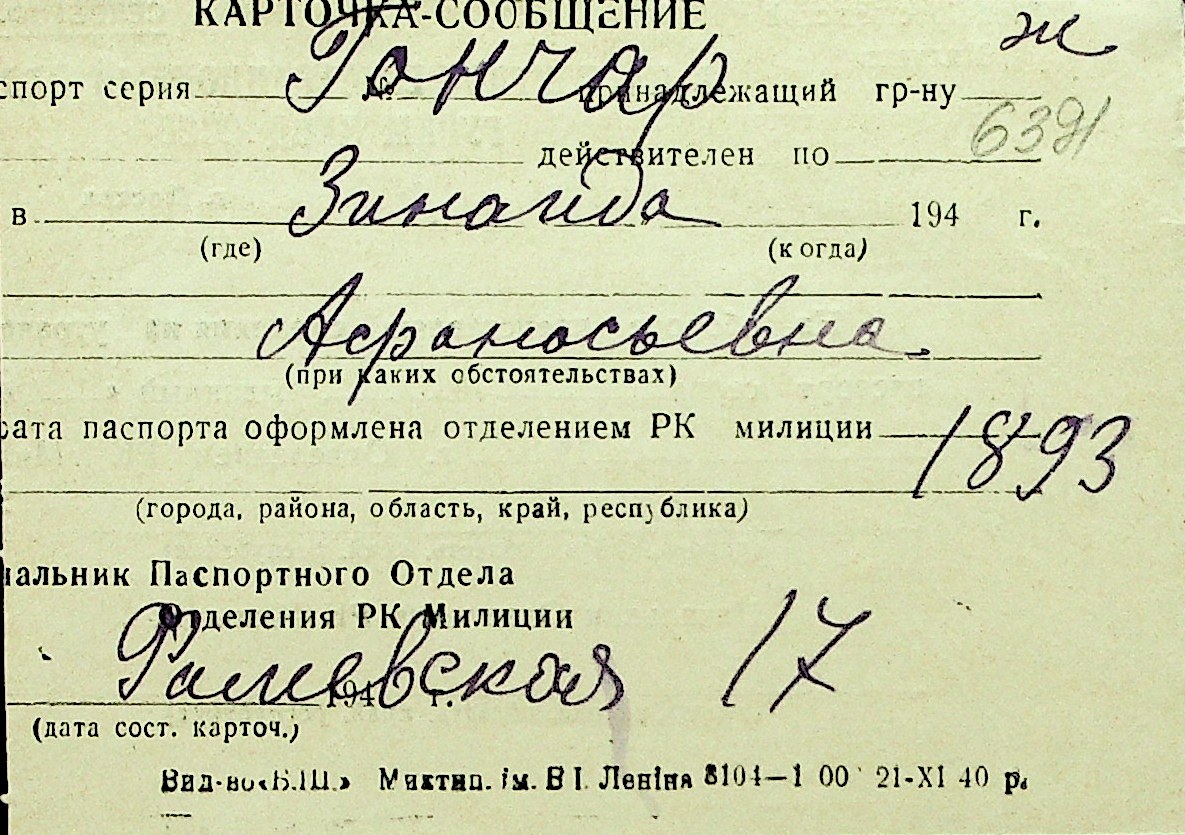 КАРТОЧКА-СООБЩЕНИЕ
Гончар ж
спорт серия № принадлежащий гр-ну
6391
действителен по
в Зинаида 194 г.
(где) (когда)
Афанасьевна
(при каких обстоятельствах)
рата паспорта оформлена отделением РК милиции
1893
(города, района, область, край, республика)
чальник Паспортного Отдела
Отделения РК Милиции
17
194 г.
(дата сост. карточ.)
Вид-во «Б.Ш.» Михтип. ім. В І. Леніна 8104—1 00 21-XI 40 р.